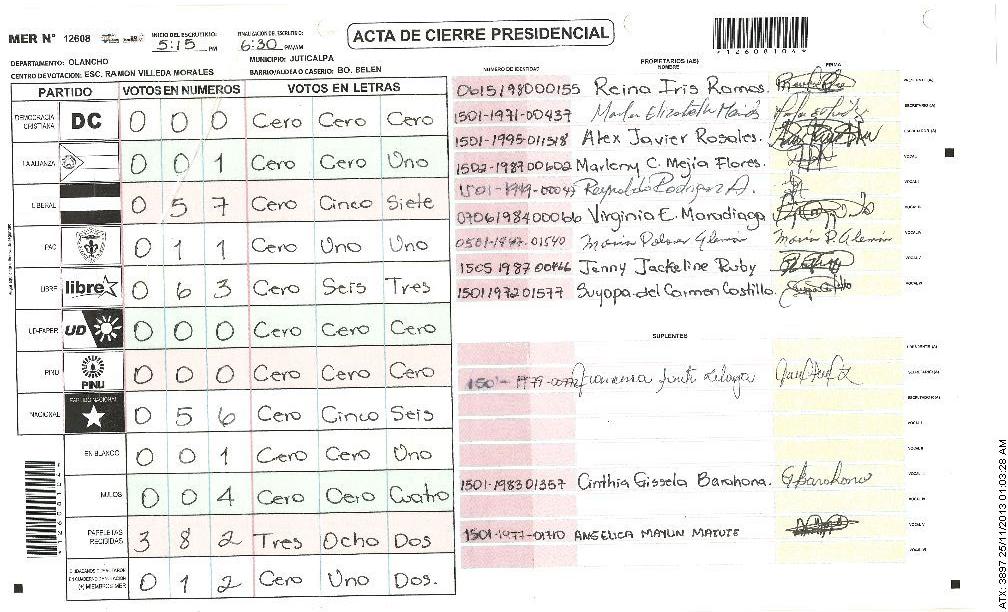 MER Nº 12608
INICIO DEL ESCRUTINIO: 5:15 PM
FINALIZACION DEL ESCRUTINIO: 6:30 PM/AM
ACTA DE CIERRE PRESIDENCIAL
DEPARTAMENTO: OLANCHO
MUNICIPIO: JUTICALPA
CENTRO DE VOTACION: ESC. RAMON VILLEDA MORALES
BARRIO/ALDEA O CASERIO: BO. BELEN
PARTIDO VOTOS EN NUMEROS VOTOS EN LETRAS
DEMOCRACIA CRISTIANA DC 0 0 0 Cero Cero Cero
LA ALIANZA 0 0 1 Cero Cero Uno
LIBERAL 0 5 7 Cero Cinco Siete
PAC 0 1 1 Cero Uno Uno
LIBRE libre 0 6 3 Cero Seis Tres
UD-FAPER UD 0 0 0 Cero Cero Cero
PINU PINU 0 0 0 Cero Cero Cero
NACIONAL PARTIDO NACIONAL 0 5 6 Cero Cinco Seis
EN BLANCO 0 0 1 Cero Cero Uno
NULOS 0 0 4 Cero Cero Cuatro
PAPELETAS RECIBIDAS 3 8 2 Tres Ocho Dos
0 1 2 Cero Uno Dos.
PROPIETARIOS (AS)
NUMERO DE IDENTIDAD NOMBRE FIRMA
0615198000155 Reina Iris Ramos.
1501-1971-00437 Elizabeth
1501-1995-011518 Alex Javier Rosales.
1502-198700602 Marleny C. Mejía Flores.
Reynaldo Rodriguez A.
0706198400066 Virginia E. Maradiaga
01540 Maria Alemán Maria P. Alemán
1505 1987 00466 Jenny Jackeline Ruby
1501197201577 Suyapa del Carmen Castillo.
SUPLENTES
1501-198301357 Cinthia Gissela Barahona. G Barahona
1501-1977-01710 ANGELICA MAYLIN MATUTE
*12608104*
ATX: 3897 25/11/2013 01:03:28 AM